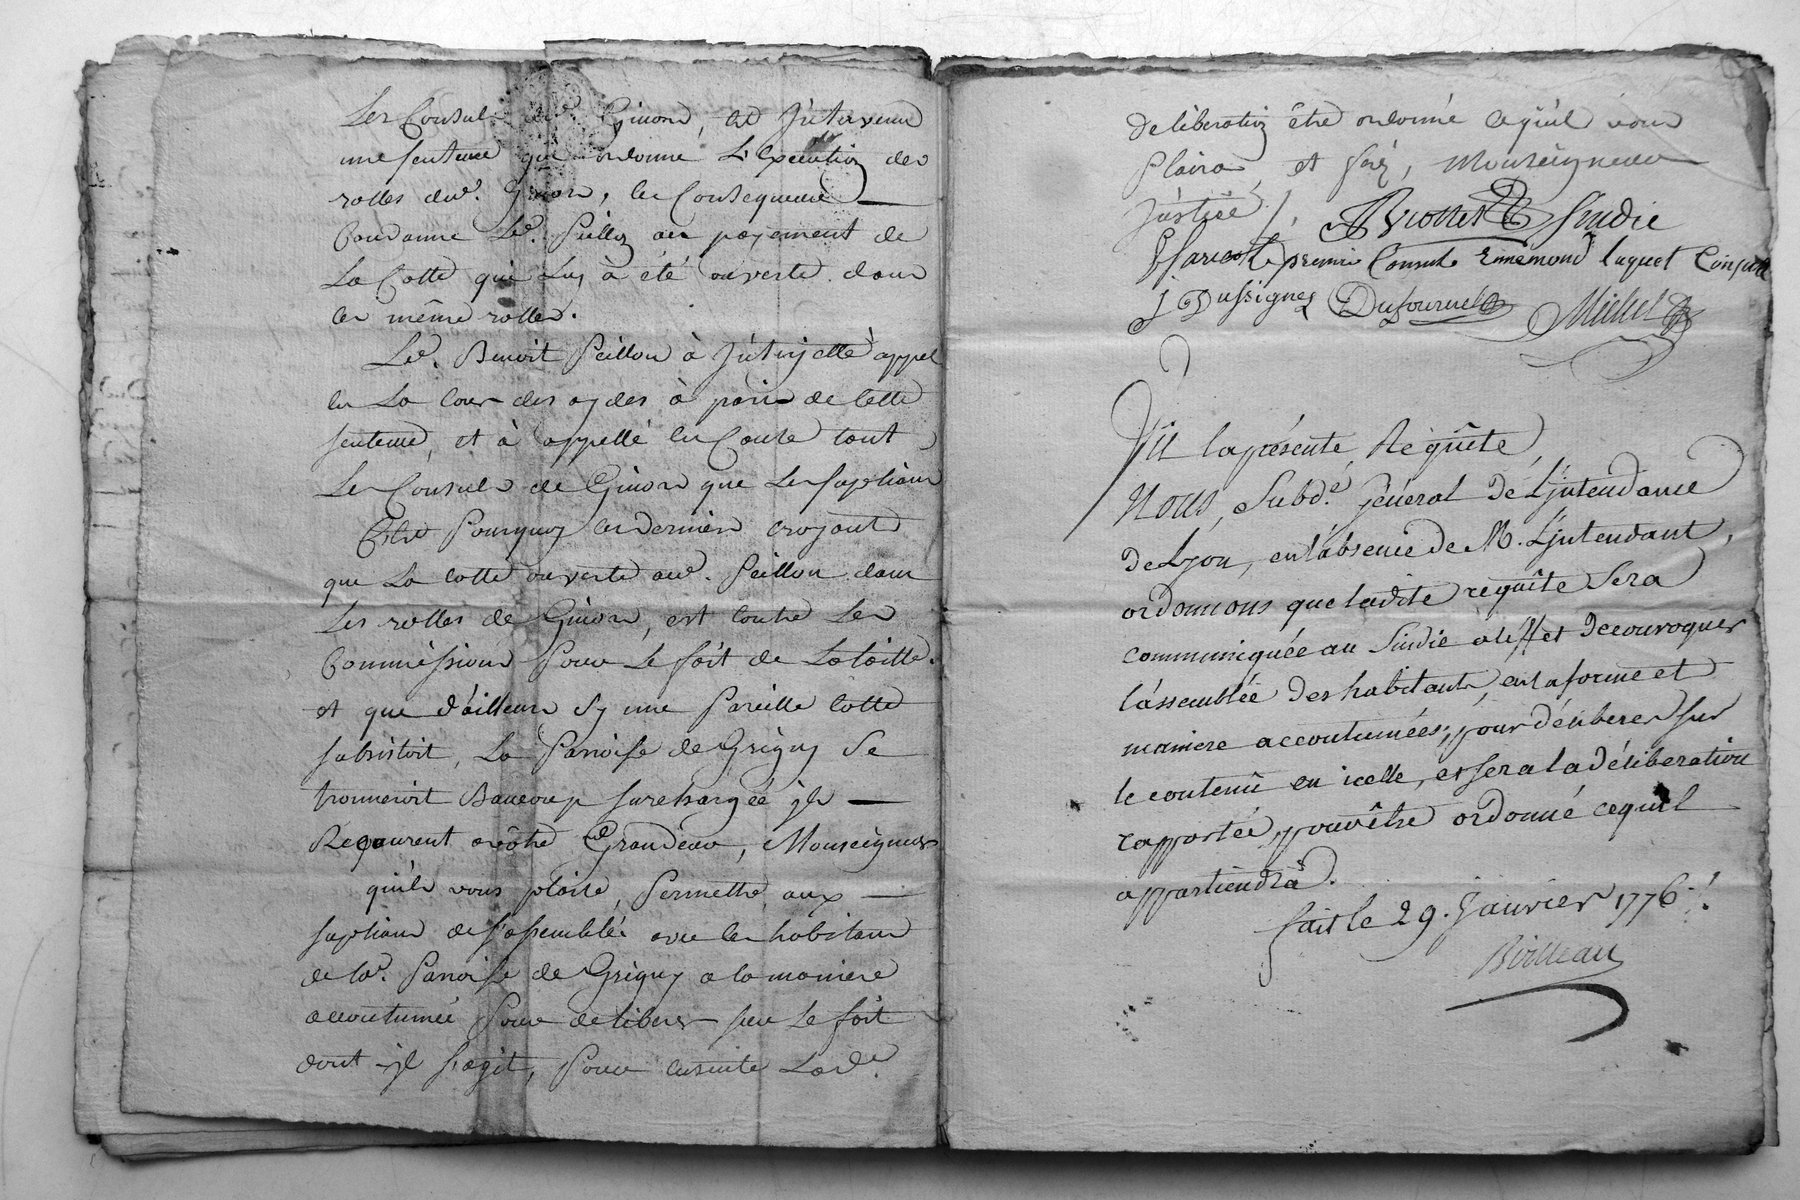 Les Consuls de Givors, est Intervenu
une sentence qui ordonne L'Execution des
rolles dud. Givors, en Consequence
Condamne Led. Peillon au payement de
La Cotte qui Luy à été ouverte dans
les même rolles.
Led. Benoit Peillon à Interjetté appel
en La Cour des aydes à paris de Cette
sentence, et à appellé en Cause tant
Les Consuls de Givors que Les suplians
C'Est Pourquoy les derniers croyant
que La Cotte ouverte aud. Peillon dans
Les rolles de Givors, est Contre Les
Commissions Pour Le fait de La taille.
et que d'ailleurs sy une Pareille Cotte
subsistoit, La Paroisse de Grigny se
trouveroit Baucoup surchargée ils
Requurent a vôtre Grandeur, Monseigneur
qu'ils vous plaise, Permettre aux
suplians de s'assemblér avec les habitans
de lad. Paroisse de Grigny a la maniere
accoutumée Pour deliberer sur Le fait
dont il s'agit, Pour Ensuite Lad.
deliberation être ordonné cequ'il vous
Plaira, et serés, Monseigneur
Justice /.
Brottet Sindic
premier Consul Ennemond luquet Consul
J Dussigney Dufournel Michel
Vû la présente Requête,
Nous, Subd.é Général De L'Intendance
De Lyon, en l'absence de M. L'Intendant,
ordonnons que ladite requête Sera
communiquée au Sindic a l'effet De convoquer
l'assemblée Des habitants, en la forme et
maniere accoutumées, pour déliberer sur
le contenû en icelle, et sera la déliberation
rapportée, pour être ordonné cequil
appartiendrà.
fait le 29. Janvier 1776.